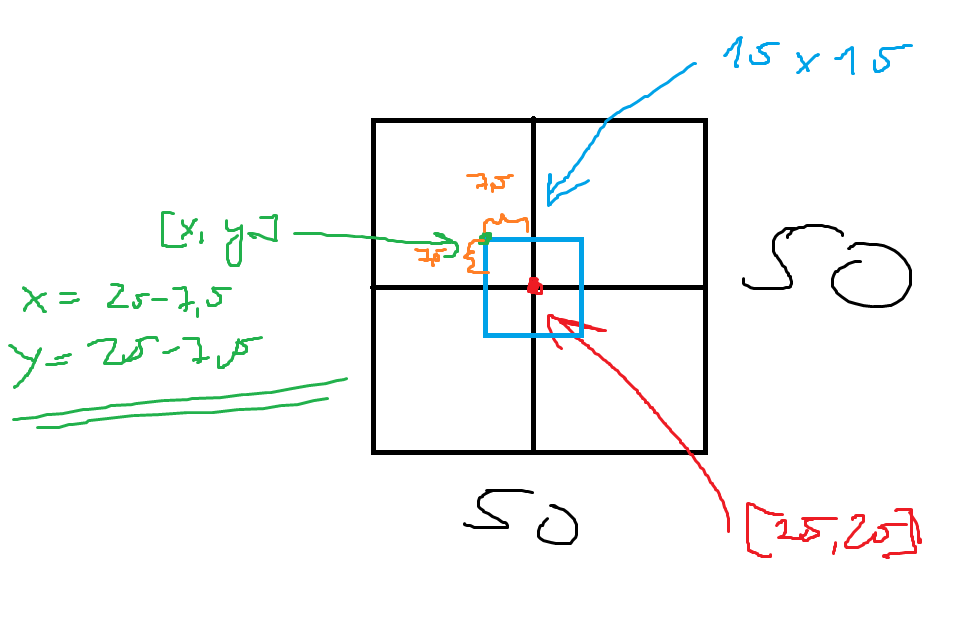 15 x 15
7,5
[x, y]
7,5
x = 25-7,5
y = 25-7,5
50
50
[25,25]